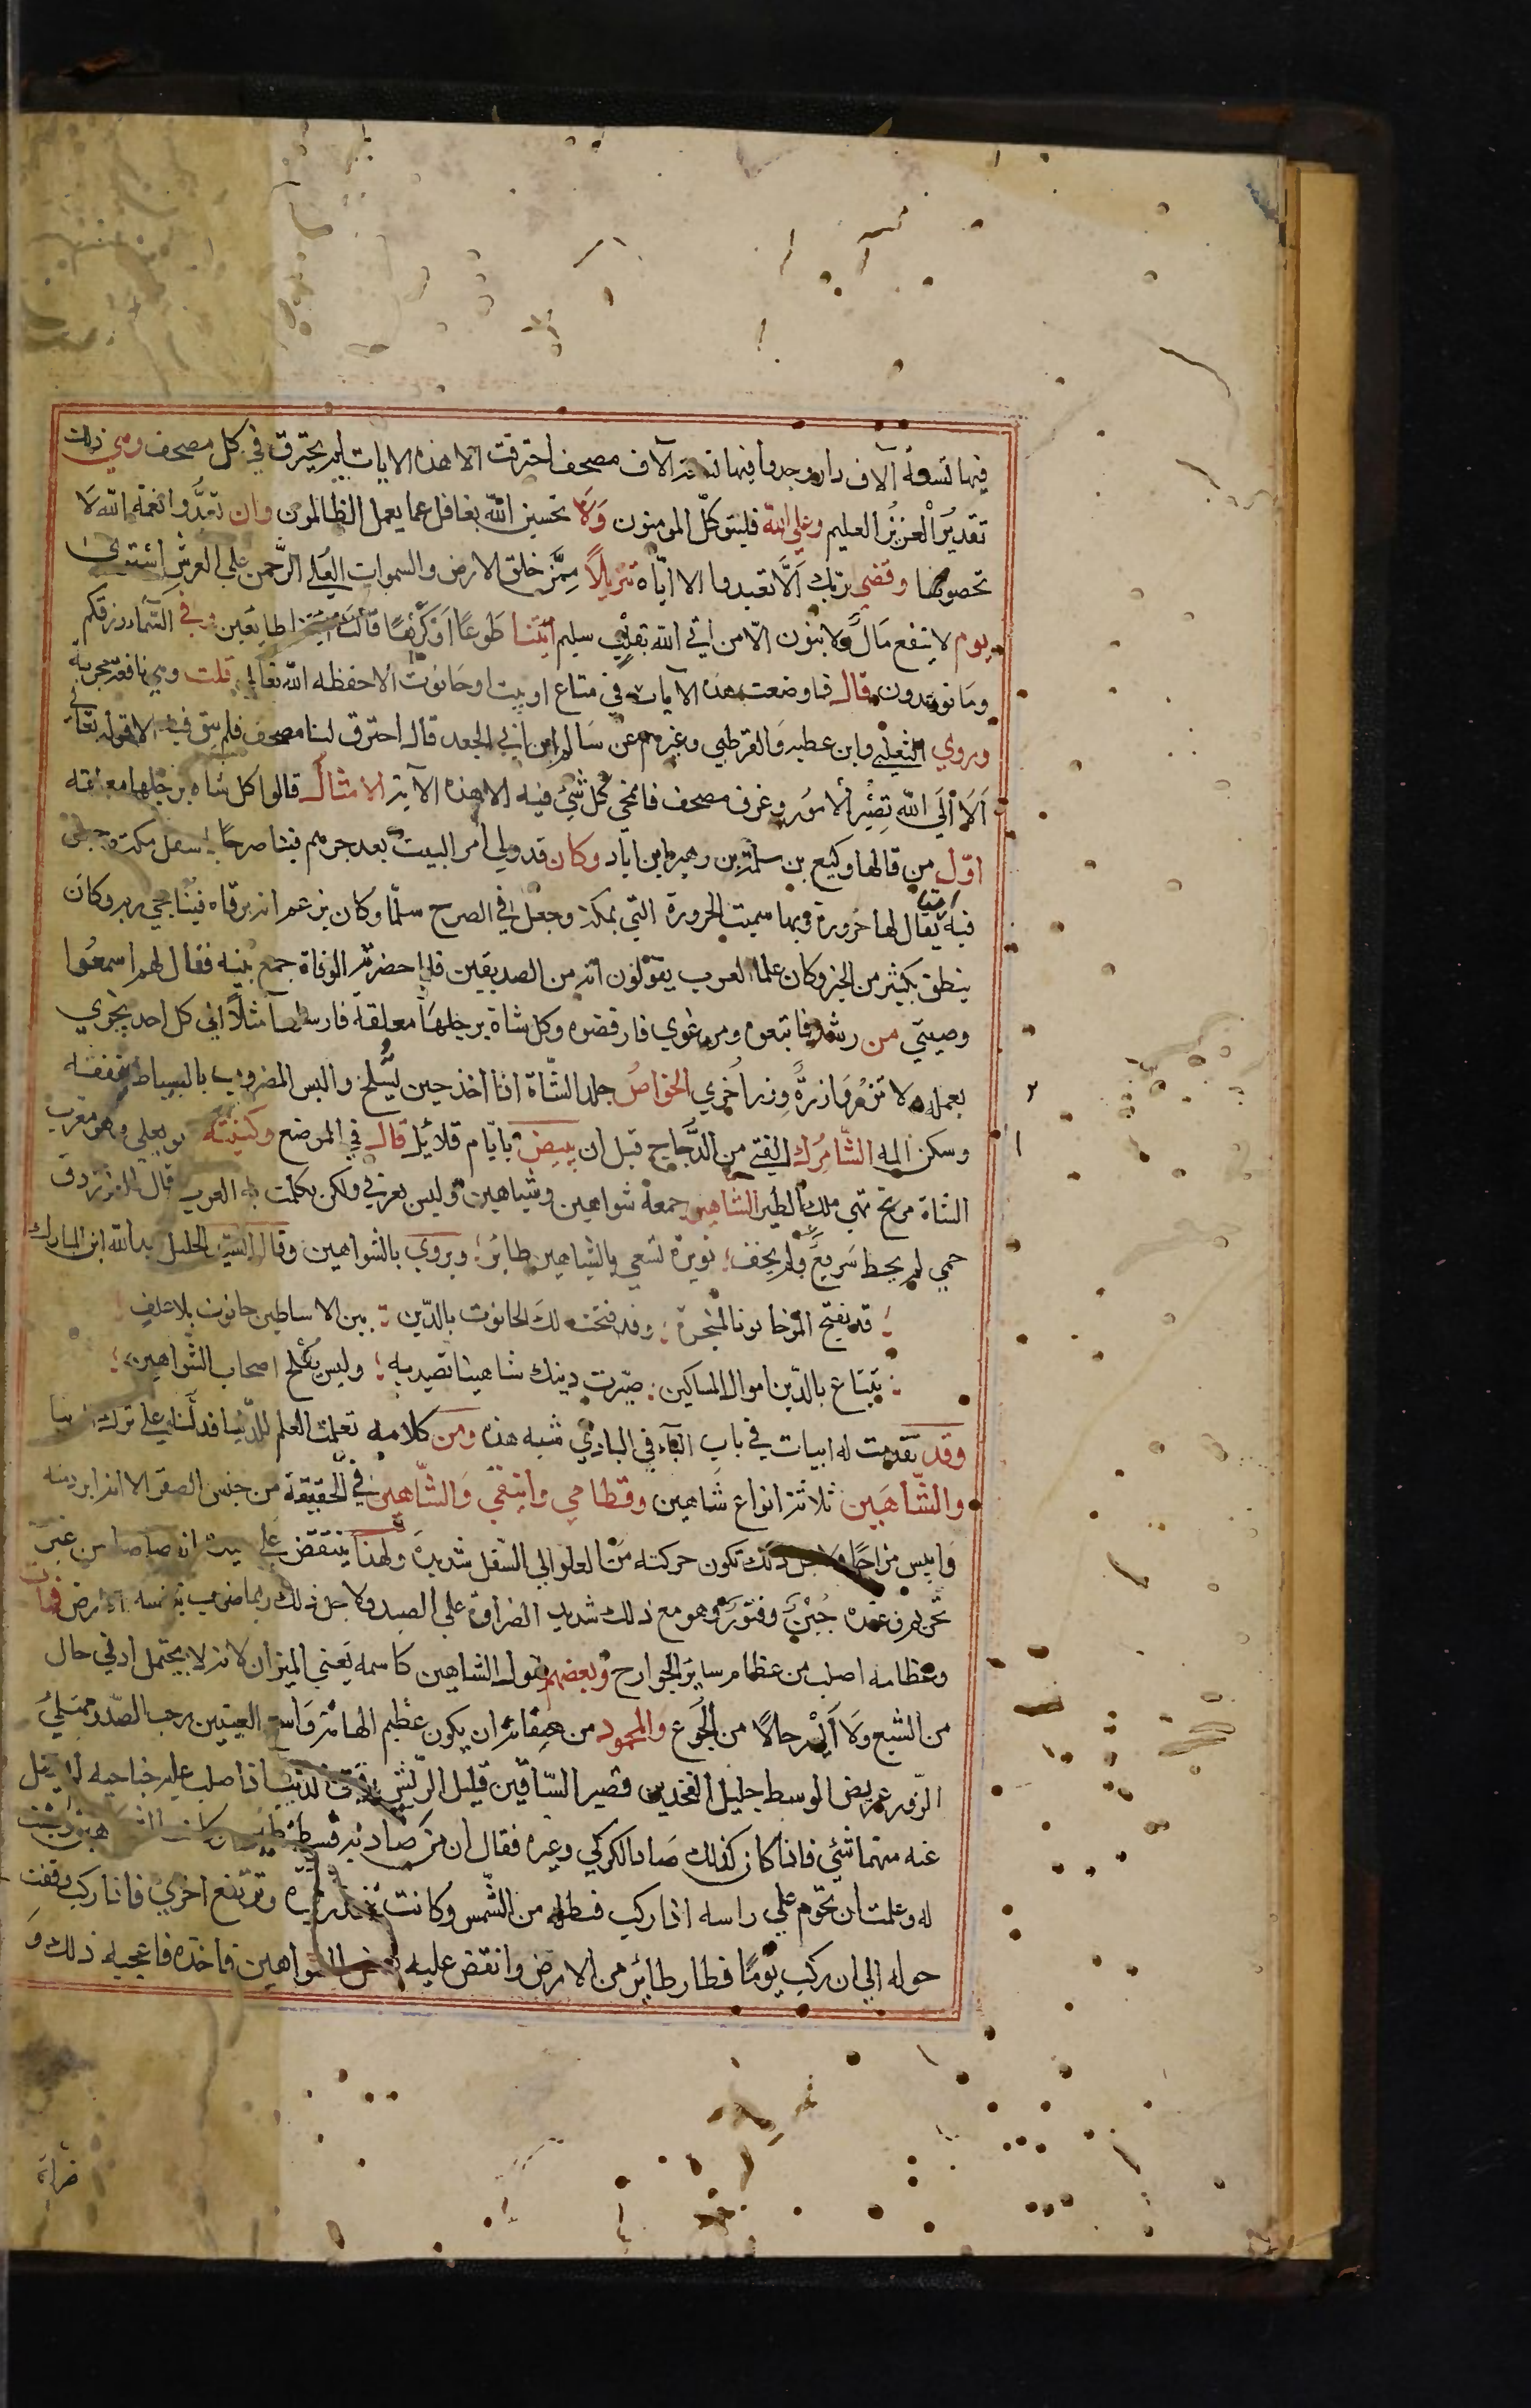 فيها تسعة آلاف دار وجدوا فيها تسعة آلاف مصحف احترقت الا هذه الايات لم يحترق في كل مصحف وهي ذلك
تقدير العزيز العليم وعلى الله فليتوكل المومنون ولا تحسبن الله بغافل عما يعمل الظالمون وان تعدوا نعمة الله لا
تحصوها وقضى ربك الا تعبدوا الا اياه تنزيلا ممن خلق الارض والسموات العلي الرحمن علي العرش استوى
يوم لا ينفع مال ولا بنون الا من اتي الله بقلب سليم ائتيا طوعا او كرها قالتا اتينا طايعين وفي السماء رزقكم
وما توعدون قال فما وضعت هذه الآيات في متاع او بيت او حانوت الا حفظه الله تعالي قلت وهي نافعة مجربة
وروي الثعلبي وابن عطية والقرطبي وغيرهم عن سالم ابن ابي الجعد قال احترق لنا مصحف فلم يبق فيه الا قوله تعالي
الا الي الله تصير الامور وغرق مصحف فانمحي كل شئ فيه الا هذه الآية الامثال قالوا كل شاة برجلها معلقة
اول من قالها وكيع بن سلمة بن زهير ابن اياد وكان قد ولي امر البيت بعد جرهم فبنا صرحا باسفل مكة وجعل
امة
فيه يقال لها خزورة وبها سميت الخرورة التي بمكة وجعل في الصرح سلما وكان يزعم انه يرقاه فيناجي ربه وكان
ينطق بكثير من الخبر وكان علماء العرب يقولون انه من الصديقين فلما حضرته الوفاة جمع بنيه فقال لهم اسمعوا
وصيتي من رشد فاتبعوه ومن غوي فارفضوه وكل شاة برجلها معلقة فارسلها مثلا اي كل احد يجزي
بعمله ولا تزر وازرة وزر اخري الخواص جلد الشاة اذا اخذ حين يسلخ والبس المضروب بالسياط نفعه
وسكن المه الشامرك الفتي من الدجاج قبل ان يبيض بايام قلائل قال في المرصع وكنيته ابو يعلي وهو معرب
الشاة مرغ تهي ملك الطير الشاهين جمعه شواهين وشياهين وليس بعربي ولكن تكلمت به العرب قال الفرزدق
حمي لم يحط سريع ولم يخف ؛ نويرة تسعي بالشياهين طائر ؛ ويروي بالشواهين وقال السيد الجليل عبد الله ابن المبارك
قد يفتح المرء حانوتا لمتجرة ؛ وقد فتحت لك الحانوت بالدين ؛ بين الاساطين حانوت بلا غلق
تبتاع بالدين اموال المساكين ؛ صيرت دينك شاهينا تصيد به ؛ وليس يفلح اصحاب الشواهين ؛
وقد تقدمت له ابيات في باب الباء في البازي شبه هذه ومن كلامه تعلمت العلم للدنيا فدلنا علي ترك الدنيا
والشاهين ثلاثة انواع شاهين وقطامي وانيقي والشاهين في الحقيقة من جنس الصقر الا انه ابرد منه
وايبس مزاجا ولاجل ذلك تكون حركته من العلو الي السفل شديدة ولهذا ينقض علي صيده انقضاضا من غير
تحريم وعنده جبن وفتور وهو مع ذلك شديد الضراوة علي الصيد ولاجل ذلك ربما ضرب بنفسه الارض فمات
وعظامه اصلب من عظام ساير الجوارح وبعضهم يقول الشاهين كاسمه يعني الميزان لانه لا يحتمل ادني حال
من الشبع ولا ايسر حالا من الجوع والمحمود من صفاته ان يكون عظيم الهامة واسع العينين رحب الصدر ممتلئ
الزور عريض الوسط جليل الفخدين قصير الساقين قليل الريش رقيق الذنب اذا صلب عليه جناحيه لم يفضل
عنه منهما شئ فاذا كان كذلك صاد الكركي وغيره فقال ان من صاد به قسطنطين
له وعلمت ان تحوم علي راسه اذا ركب فتظله من الشمس وكانت تنحدر مرة وترتفع اخري فاذا ركب وقفت
حوله الي ان ركب يوما فطار طائر من الارض وانقض عليه بعض الشواهين فاخذه فاعجبه ذلك و
ضراه